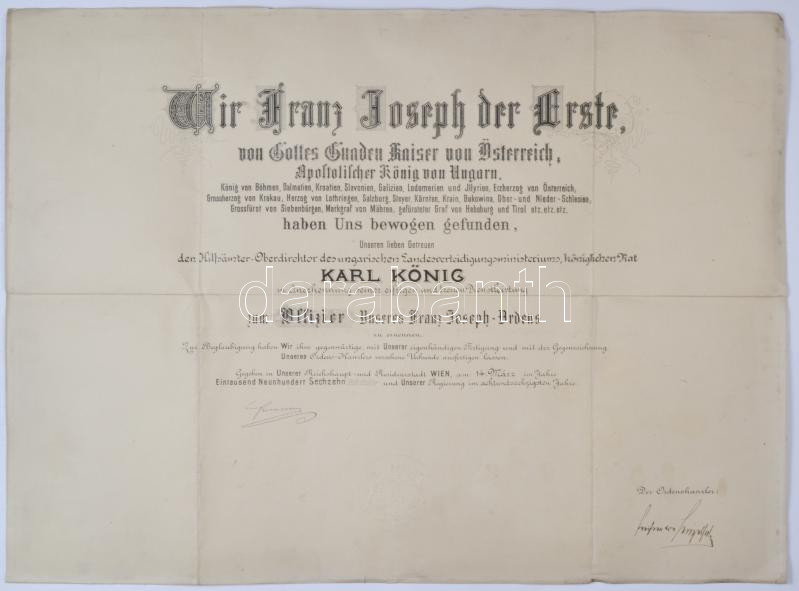 Wir Franz Joseph der Erste,
von Gottes Gnaden Kaiser von Österreich,
Apostolischer König von Ungarn,
König von Böhmen, Dalmatien, Kroatien, Slavonien, Galizien, Lodomerien und Jllyrien, Erzherzog von Österreich,
Grossherzog von Krakau, Herzog von Lothringen, Salzburg, Steyer, Kärnten, Krain, Bukowina, Ober- und Nieder-Schlesien,
Grossfürst von Siebenbürgen, Markgraf von Mähren, gefürsteter Graf von Habsburg und Tirol etz. etz. etz.
haben Uns bewogen gefunden,
Unseren lieben Getreuen
den Hilfsämter-Oberdirektor des ungarischen Landesverteidigungsministeriums, königlichen Rat
KARL KÖNIG
in Anerkennung seiner eifrigen und treuen Dienstleistung
zum Offizier Unseres Franz Joseph-Ordens
zu ernennen.
Zur Beglaubigung haben Wir ihm gegenwärtige, mit Unserer eigenhändigen Fertigung und mit der Gegenzeichnung
Unseres Ordens-Kanzlers versehene Urkunde ausfertigen lassen.
Gegeben in Unserer Reichshaupt- und Residenzstadt WIEN, am 14. März im Jahre
Eintausend Neunhundert Sechzehn und Unserer Regierung im achtundsechzigsten Jahre.
darabanth.com
Der Ordenskanzler: